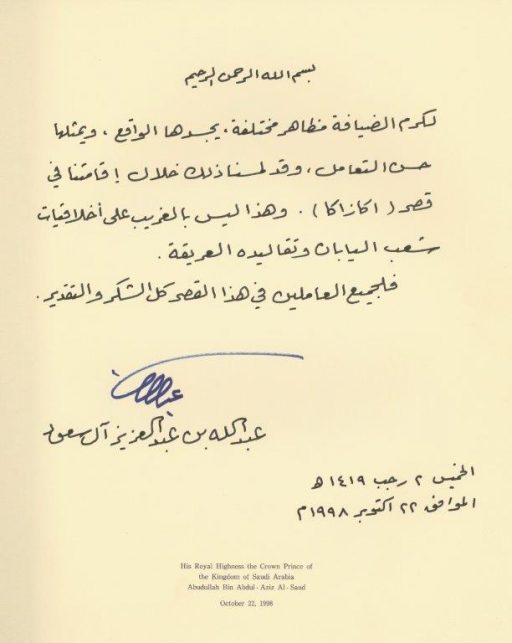 بسم الله الرحمن الرحيم
لكرم الضيافة مظاهر مختلفة، يجسدها الواقع، ويمثلها
حسن التعامل، وقد لمسنا ذلك خلال إقامتنا في
قصر (اكازاكا). وهذا ليس بالغريب على أخلاقيات
شعب اليابان وتقاليده العريقة.
فلجميع العاملين في هذا القصر كل الشكر والتقدير.
عبدالله بن عبدالعزيز آل سعود
الخميس ٢ رجب ١٤١٩ هـ
الموافق ٢٢ اكتوبر ١٩٩٨م
His Royal Highness the Crown Prince of
the Kingdom of Saudi Arabia
Abudullah Bin Abdul-Aziz Al-Saud
October 22, 1998